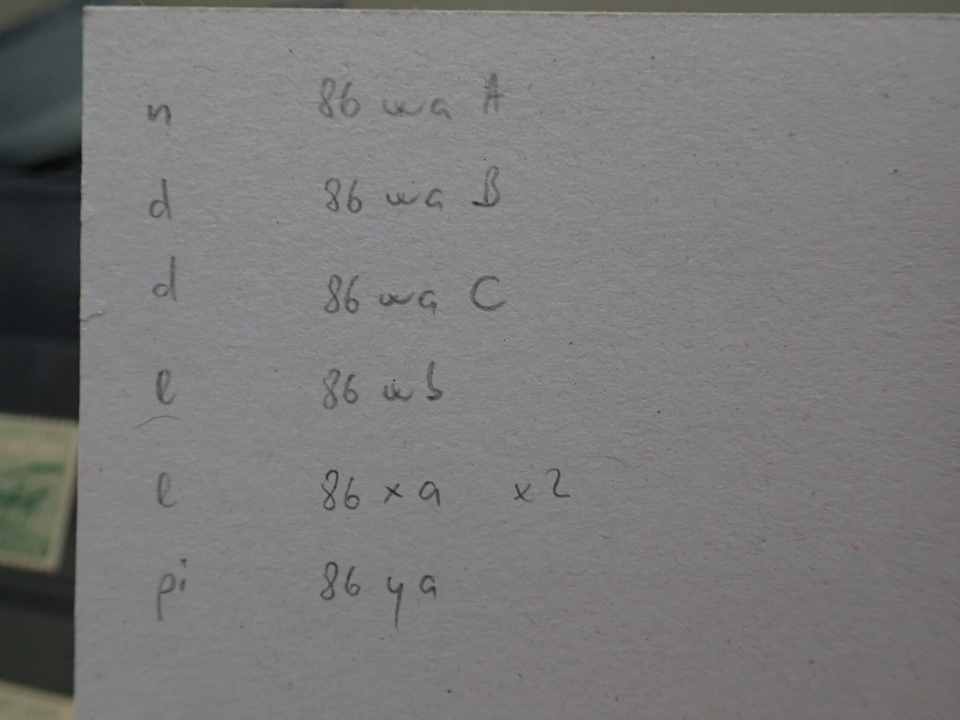 n 86 wa A
d 86 wa B
d 86 wa C
l 86 wb
l 86 xa x2
pi 86 ya